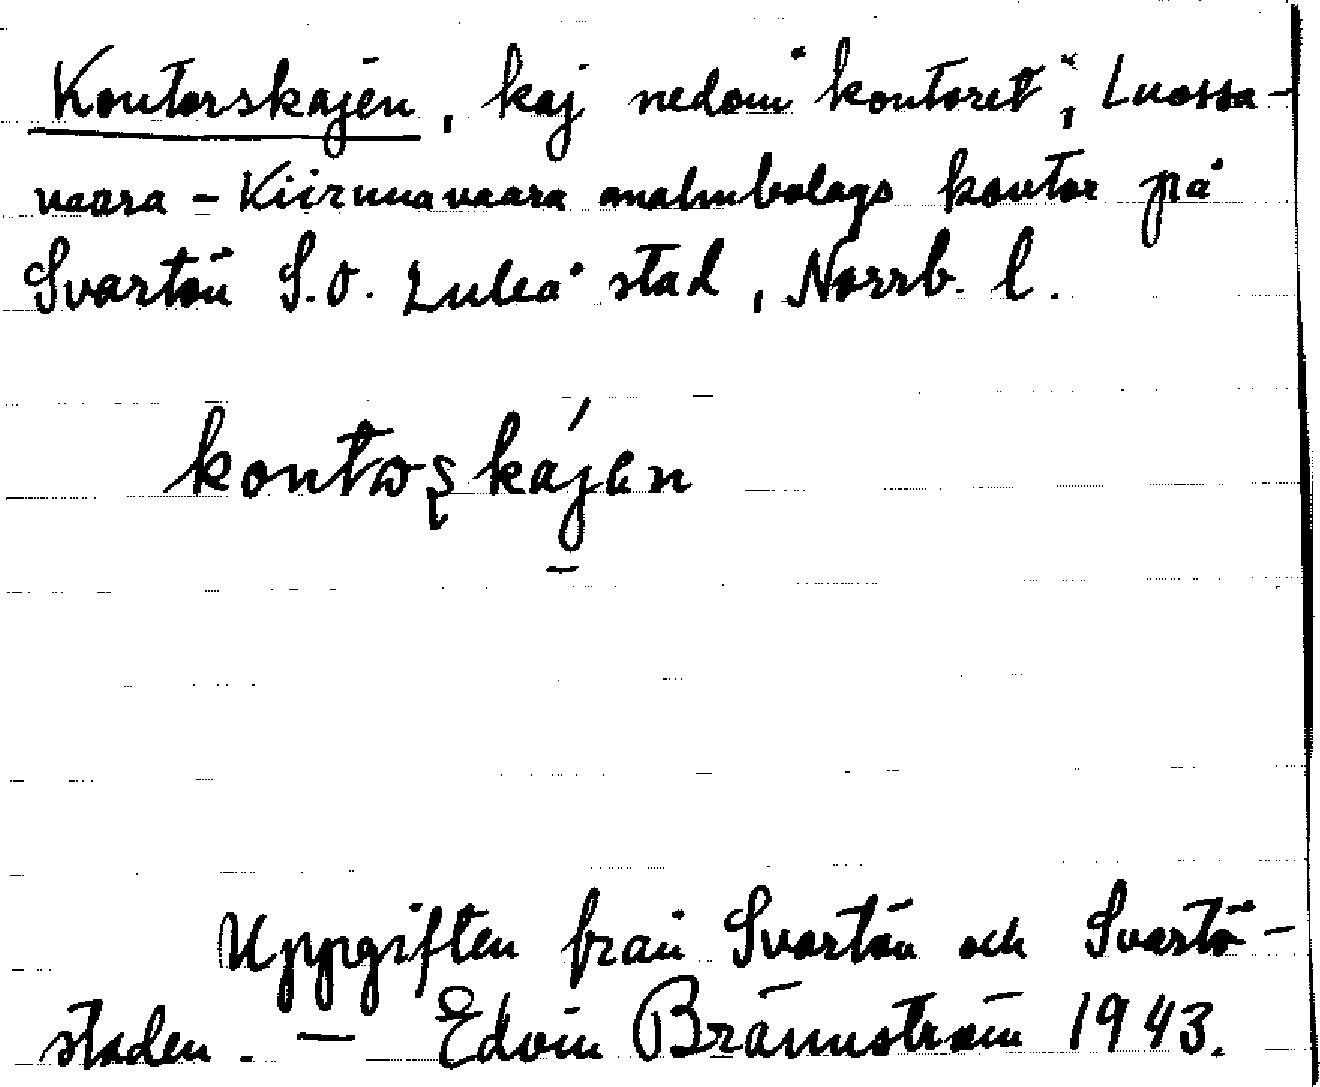 Kontorskajen, kaj nedom "kontoret", Luossa-
vaara - Kiirunavaara malmbolags kontor på
Svartön S.O. Luleå stad, Norrb. l.
kontoṣkájen
Uppgiften från Svartön och Svartö-
staden. — Edvin Brännström 1943.